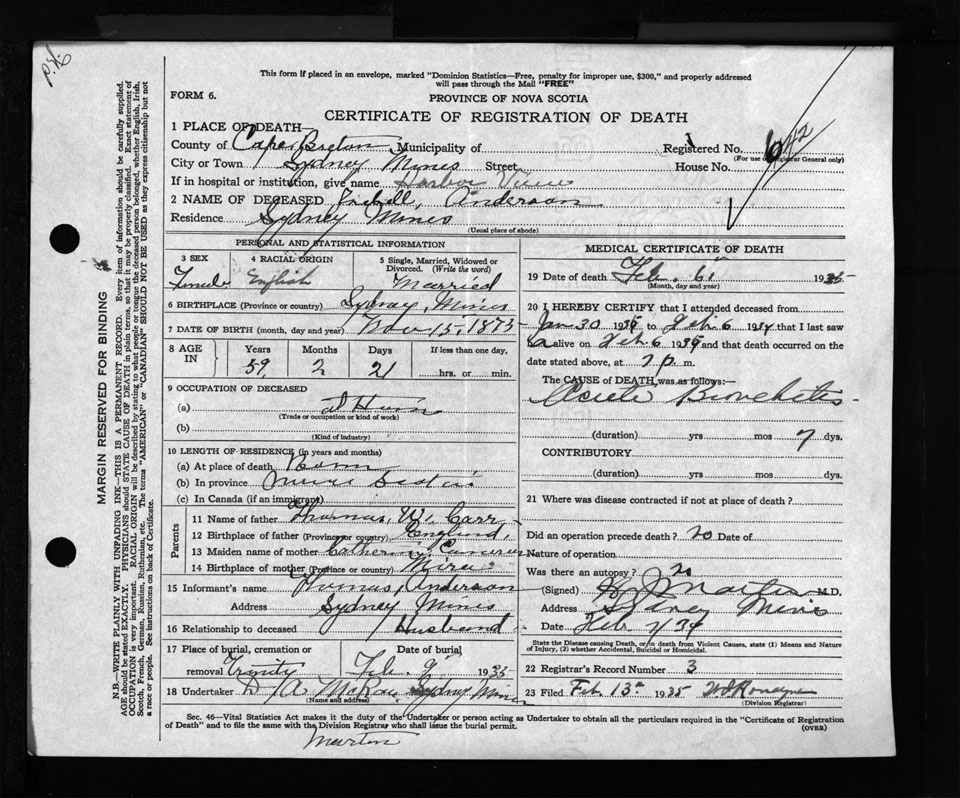 This form if placed in an envelope, marked "Dominion Statistics—Free, penalty for improper use, $300," and properly addressed
will pass through the Mail "FREE"
FORM 6.
PROVINCE OF NOVA SCOTIA
CERTIFICATE OF REGISTRATION OF DEATH
1 PLACE OF DEATH—
County of Cape Breton Municipality of Registered No. 6
(For use of Registrar General only)
City or Town Sydney Mines Street House No.
If in hospital or institution, give name Harbor View
2 NAME OF DECEASED Anderson
Residence Sydney Mines
(Usual place of abode)
PERSONAL AND STATISTICAL INFORMATION
3 SEX Female
4 RACIAL ORIGIN English
5 Single, Married, Widowed or Divorced. (Write the word) Married
6 BIRTHPLACE (Province or country) Sydney Mines
7 DATE OF BIRTH (month, day and year) Nov 15, 1875
8 AGE IN Years Months Days If less than one day,
59 2 21 hrs. or min.
9 OCCUPATION OF DECEASED
(a) at Home
(Trade or occupation or kind of work)
(b)
(Kind of industry)
10 LENGTH OF RESIDENCE (in years and months)
(a) At place of death Born
(b) In province
(c) In Canada (if an immigrant)
Parents
11 Name of father Thomas W. Carr
12 Birthplace of father (Province or country) England
13 Maiden name of mother Catherine Cameron
14 Birthplace of mother (Province or country) Mira
15 Informant's name Thomas Anderson
Address Sydney Mines
16 Relationship to deceased Husband
17 Place of burial, cremation or removal Trinity
Date of burial Feb. 9 1935
18 Undertaker McRae Sydney Mines
(Name and address)
MEDICAL CERTIFICATE OF DEATH
19 Date of death Feb. 6 1935
(Month, day and year)
20 I HEREBY CERTIFY that I attended deceased from
Jan 30 to Feb 6 that I last saw
alive on Feb. 6 and that death occurred on the
date stated above, at 7 p. m.
The CAUSE of DEATH was as follows:—
Acute Bronchitis
(duration) yrs mos 7 dys.
CONTRIBUTORY
(duration) yrs mos dys.
21 Where was disease contracted if not at place of death?
Did an operation precede death? no Date of
Nature of operation
Was there an autopsy? no
(Signed) M.D.
Address Sydney Mines
Date Feb. 7/34
State the Disease causing Death, or in death from Violent Causes, state (1) Means and Nature of Injury, (2) whether Accidental, Suicidal or Homicidal.
22 Registrar's Record Number 3
23 Filed Feb. 13 1935
(Division Registrar)
Sec. 46—Vital Statistics Act makes it the duty of the Undertaker or person acting as Undertaker to obtain all the particulars required in the "Certificate of Registration
of Death" and to file the same with the Division Registrar who shall issue the burial permit.
(OVER)
MARGIN RESERVED FOR BINDING
N.B.—WRITE PLAINLY WITH UNFADING INK—THIS IS A PERMANENT RECORD. Every item of information should be carefully supplied.
AGE should be stated EXACTLY. PHYSICIANS should STATE CAUSE OF DEATH in plain terms, so that it may be properly classified. Exact statement of
OCCUPATION is very important. RACIAL ORIGIN will be described by stating to what people or tongue the deceased person belonged, whether English, Irish,
Scotch, French, German, Russian, Ruthenian, etc. The terms "AMERICAN" or "CANADIAN" SHOULD NOT BE USED as they express citizenship but not
a race or people. See instructions on back of Certificate.